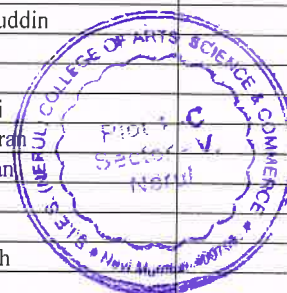 uddin
i
ran
an
h
S.I.E.S. (NERUL) COLLEGE OF ARTS SCIENCE & COMMERCE
Plot - C
Sector - V,
Nerul
Navi Mumbai